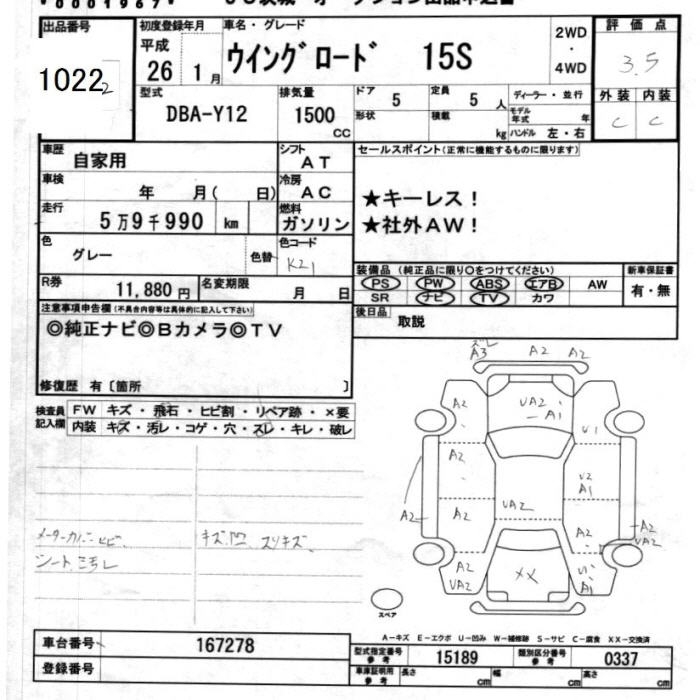 出品番号
10222
初度登録年月
平成
26 1月
車名・グレード
ウイングロード 15S
2WD
・
4WD
評価点
3.5
外装 内装
C C
型式
DBA-Y12
排気量
1500
CC
ドア 5
定員 5 人
形状
積載 kg
ディーラー・並行
モデル年式 年
ハンドル 左・右
車歴
自家用
シフト
AT
車検
年 月( 日)
冷房
AC
走行
5万9千990 km
燃料
ガソリン
色
グレー
色替
色コード
K21
R券
11,880円
名変期限
月 日
セールスポイント(正常に機能するものに限ります)
★キーレス!
★社外AW!
装備品(純正品に限り〇をつけてください)
PS PW ABS エアB AW
SR ナビ TV カワ
新車保証書
有・無
後日品
取説
注意事項申告欄(不具合内容等は具体的に記入して下さい)
◎純正ナビ◎Bカメラ◎TV
修復歴 有〔箇所 〕
検査員
記入欄
FW キズ・飛石・ヒビ割・リペア跡・×要
内装 キズ・汚レ・コゲ・穴・スレ・キレ・破レ
メーターカバーヒビ
シート
キズ凹 スリキズ
ズレ
A3 A2 A2
A2 UA2 A1 U1
A2 U2 A1
A2 A2 UA2 A2
A2 UA2
A2 UA2 XX U1 A1
スペア
A-キズ E-エクボ U-凹み W-補修跡 S-サビ C-腐食 XX-交換済
車台番号 167278
登録番号
型式指定番号
参考
15189
類別区分番号
参考
0337
車庫証明用
参考
長さ cm 幅 cm 高さ cm